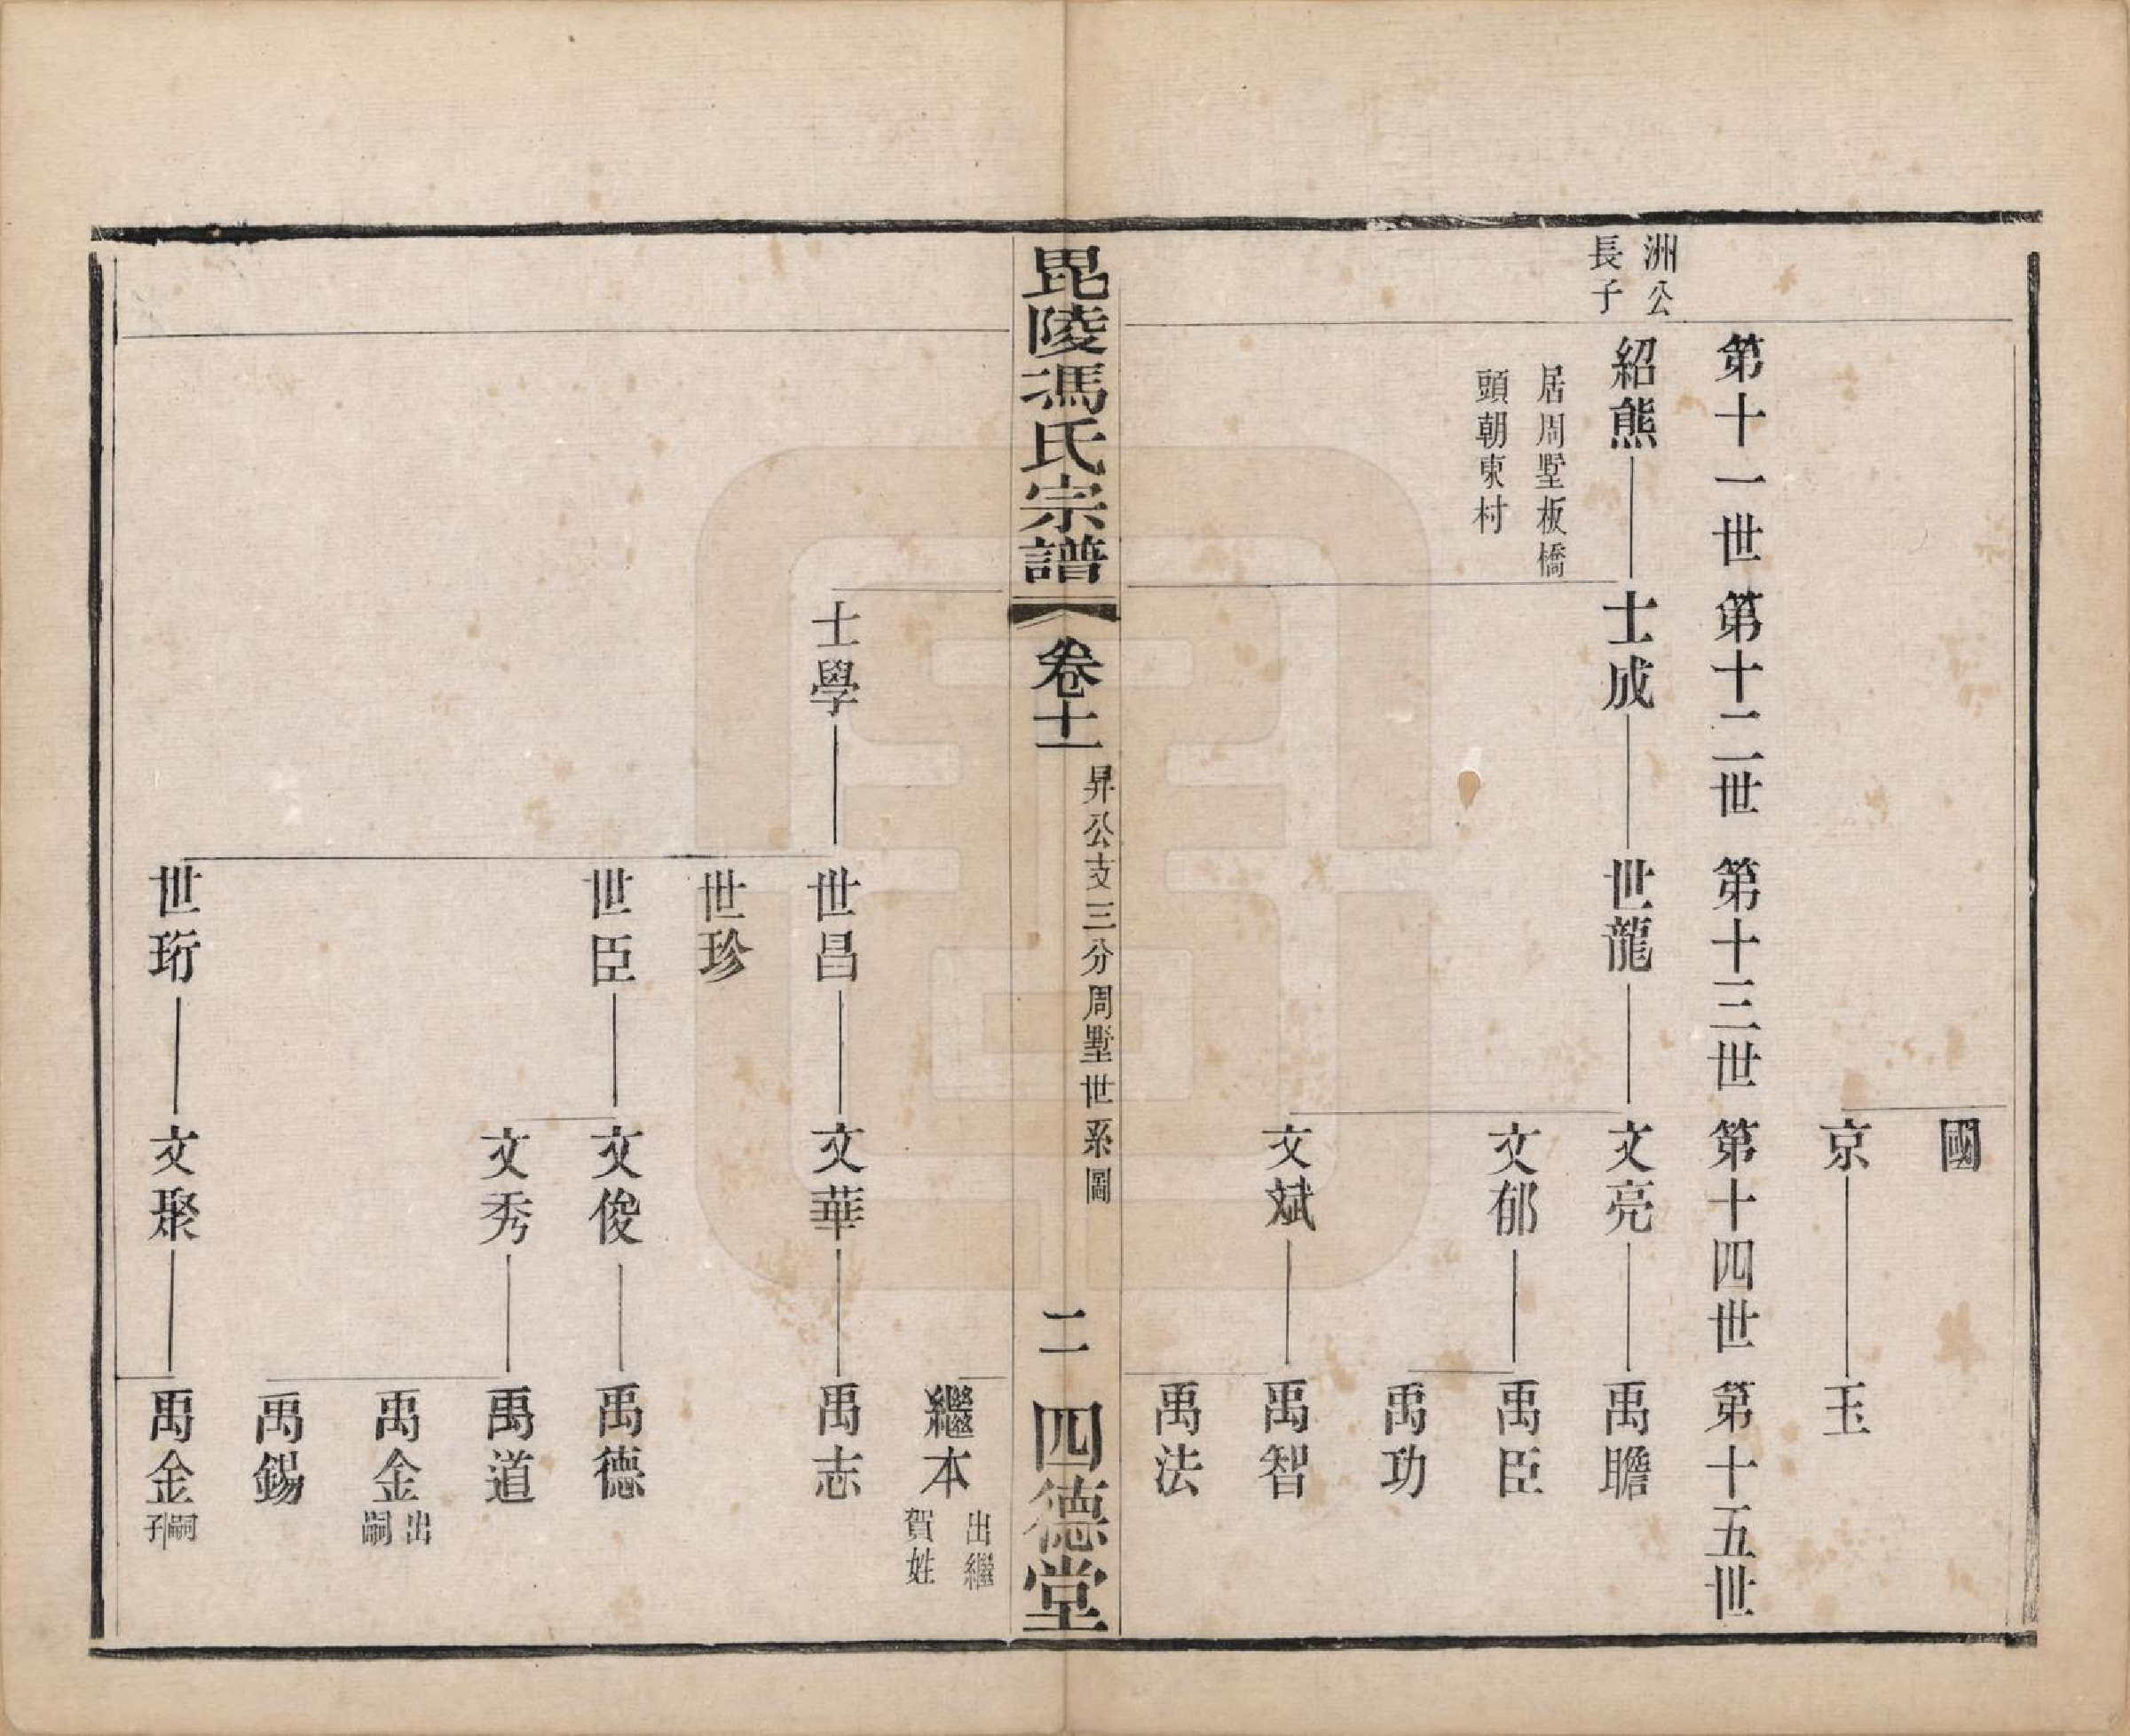 國
京　玉
第十一世　第十二世　第十三世　第十四世　第十五世
洲公
長子
紹熊　士成　世龍　文亮　禹瞻
居周墅板橋
頭朝東村
文郁　禹臣
禹功
文斌　禹智
禹法
毘陵馮氏宗譜　卷十一　昇公支三分周墅世系圖　二　四德堂
繼本
出繼
賀姓
士學　世昌　文華　禹志
世珍
世臣　文俊　禹德
文秀　禹道
禹金
出
嗣
禹錫
世珩　文聚　禹金
嗣
子